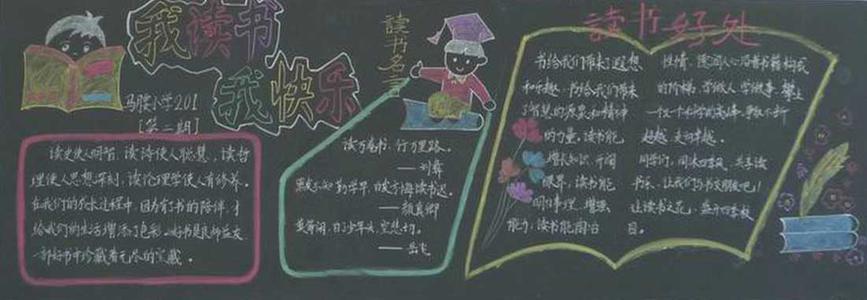 我读书
我快乐
马陵小学201
[第二期]
读史使人明智,读诗使人聪慧,读哲
理使人思想深刻,读伦理学使人有修养。
在我们的成长过程中,因为有了书的陪伴,才
给我们的生活增添了色彩。好书是良师益友
一部好书中珍藏着无尽的宝藏。
读书名言
读万卷书,行万里路。
——刘彝
黑发不知勤学早,白发方悔读书迟。
——颜真卿
莫等闲,白了少年头,空悲切。
——岳飞
读书好处
书给我们带来了遐想
和乐趣,书给我们带来
了智慧的源泉和精神
的力量,读书能
增长知识,开阔
眼界,读书能
明事理,增强
能力,读书能陶冶
性情,
的阶梯,学做人,学做事,攀上
超越,走向卓越。
同学们,
书乐,让我们与书交朋友吧!
让读书之花,盛开四季校
园。